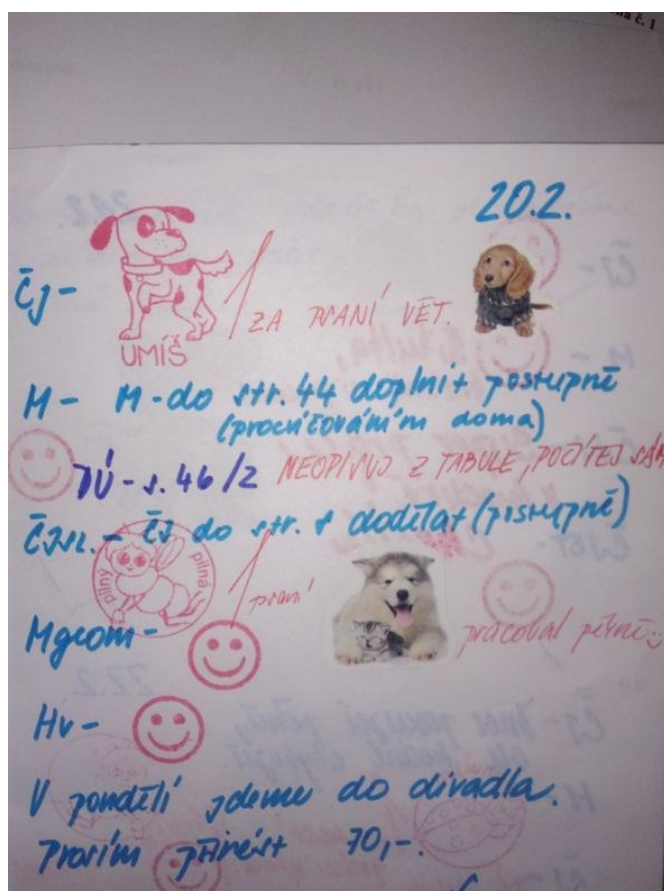 20.2.
ČJ-
UMÍŠ
1 ZA PSANÍ VĚT.
M- M-do str. 44 doplnit postupně
(procvičováním doma)
DÚ-s. 46/2 NEOPISUJ Z TABULE, POČÍTEJ SÁM
- ČJ do str. 8 dodělat (postupně)
pilný pilná
1 psaní
Mgeom-
pracoval pěkně
Hv-
V pondělí jdeme do divadla.
Prosím přinést 70,-.